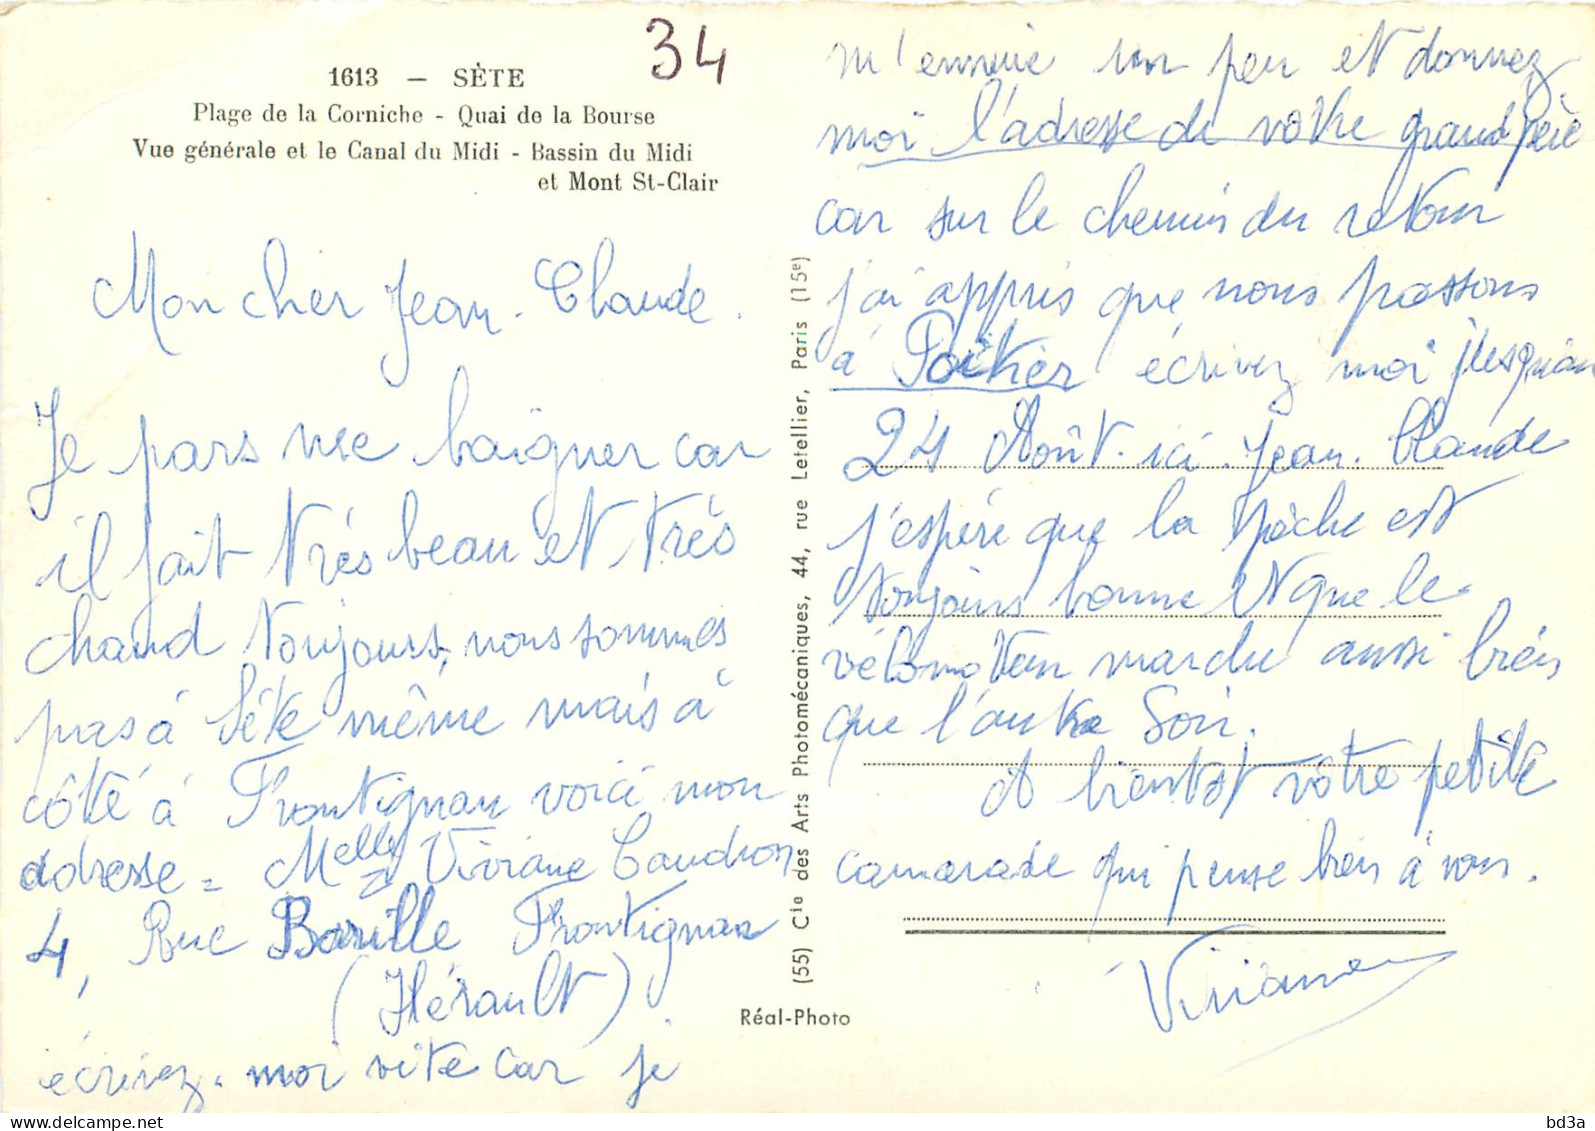 34
1613 — SÈTE
Plage de la Corniche - Quai de la Bourse
Vue générale et le Canal du Midi - Bassin du Midi
et Mont St-Clair
Mon cher Jean-Claude.
Je pars me baigner car
il fait très beau et très
chaud toujours, nous sommes
pas à Sète même mais à
côté à Frontignan voici mon
adresse = Melle Viviane Caudron
4, Rue Barille Frontignan
(Hérault)
écrivez-moi vite car je
m'ennuie un peu et donnez
moi l'adresse de votre grand père
car sur le chemin du retour
j'ai appris que nous passons
à Poitier écrivez moi jusqu'au
24 Août ici. Jean-Claude
j'espère que la pêche est
toujours bonne et que le
vélomoteur marche aussi bien
que l'autre soir.
A bientot votre petite
camarade qui pense bien à vous.
Viviane
(55) Cie des Arts Photomécaniques, 44, rue Letellier, Paris (15e)
Réal-Photo
bd3a